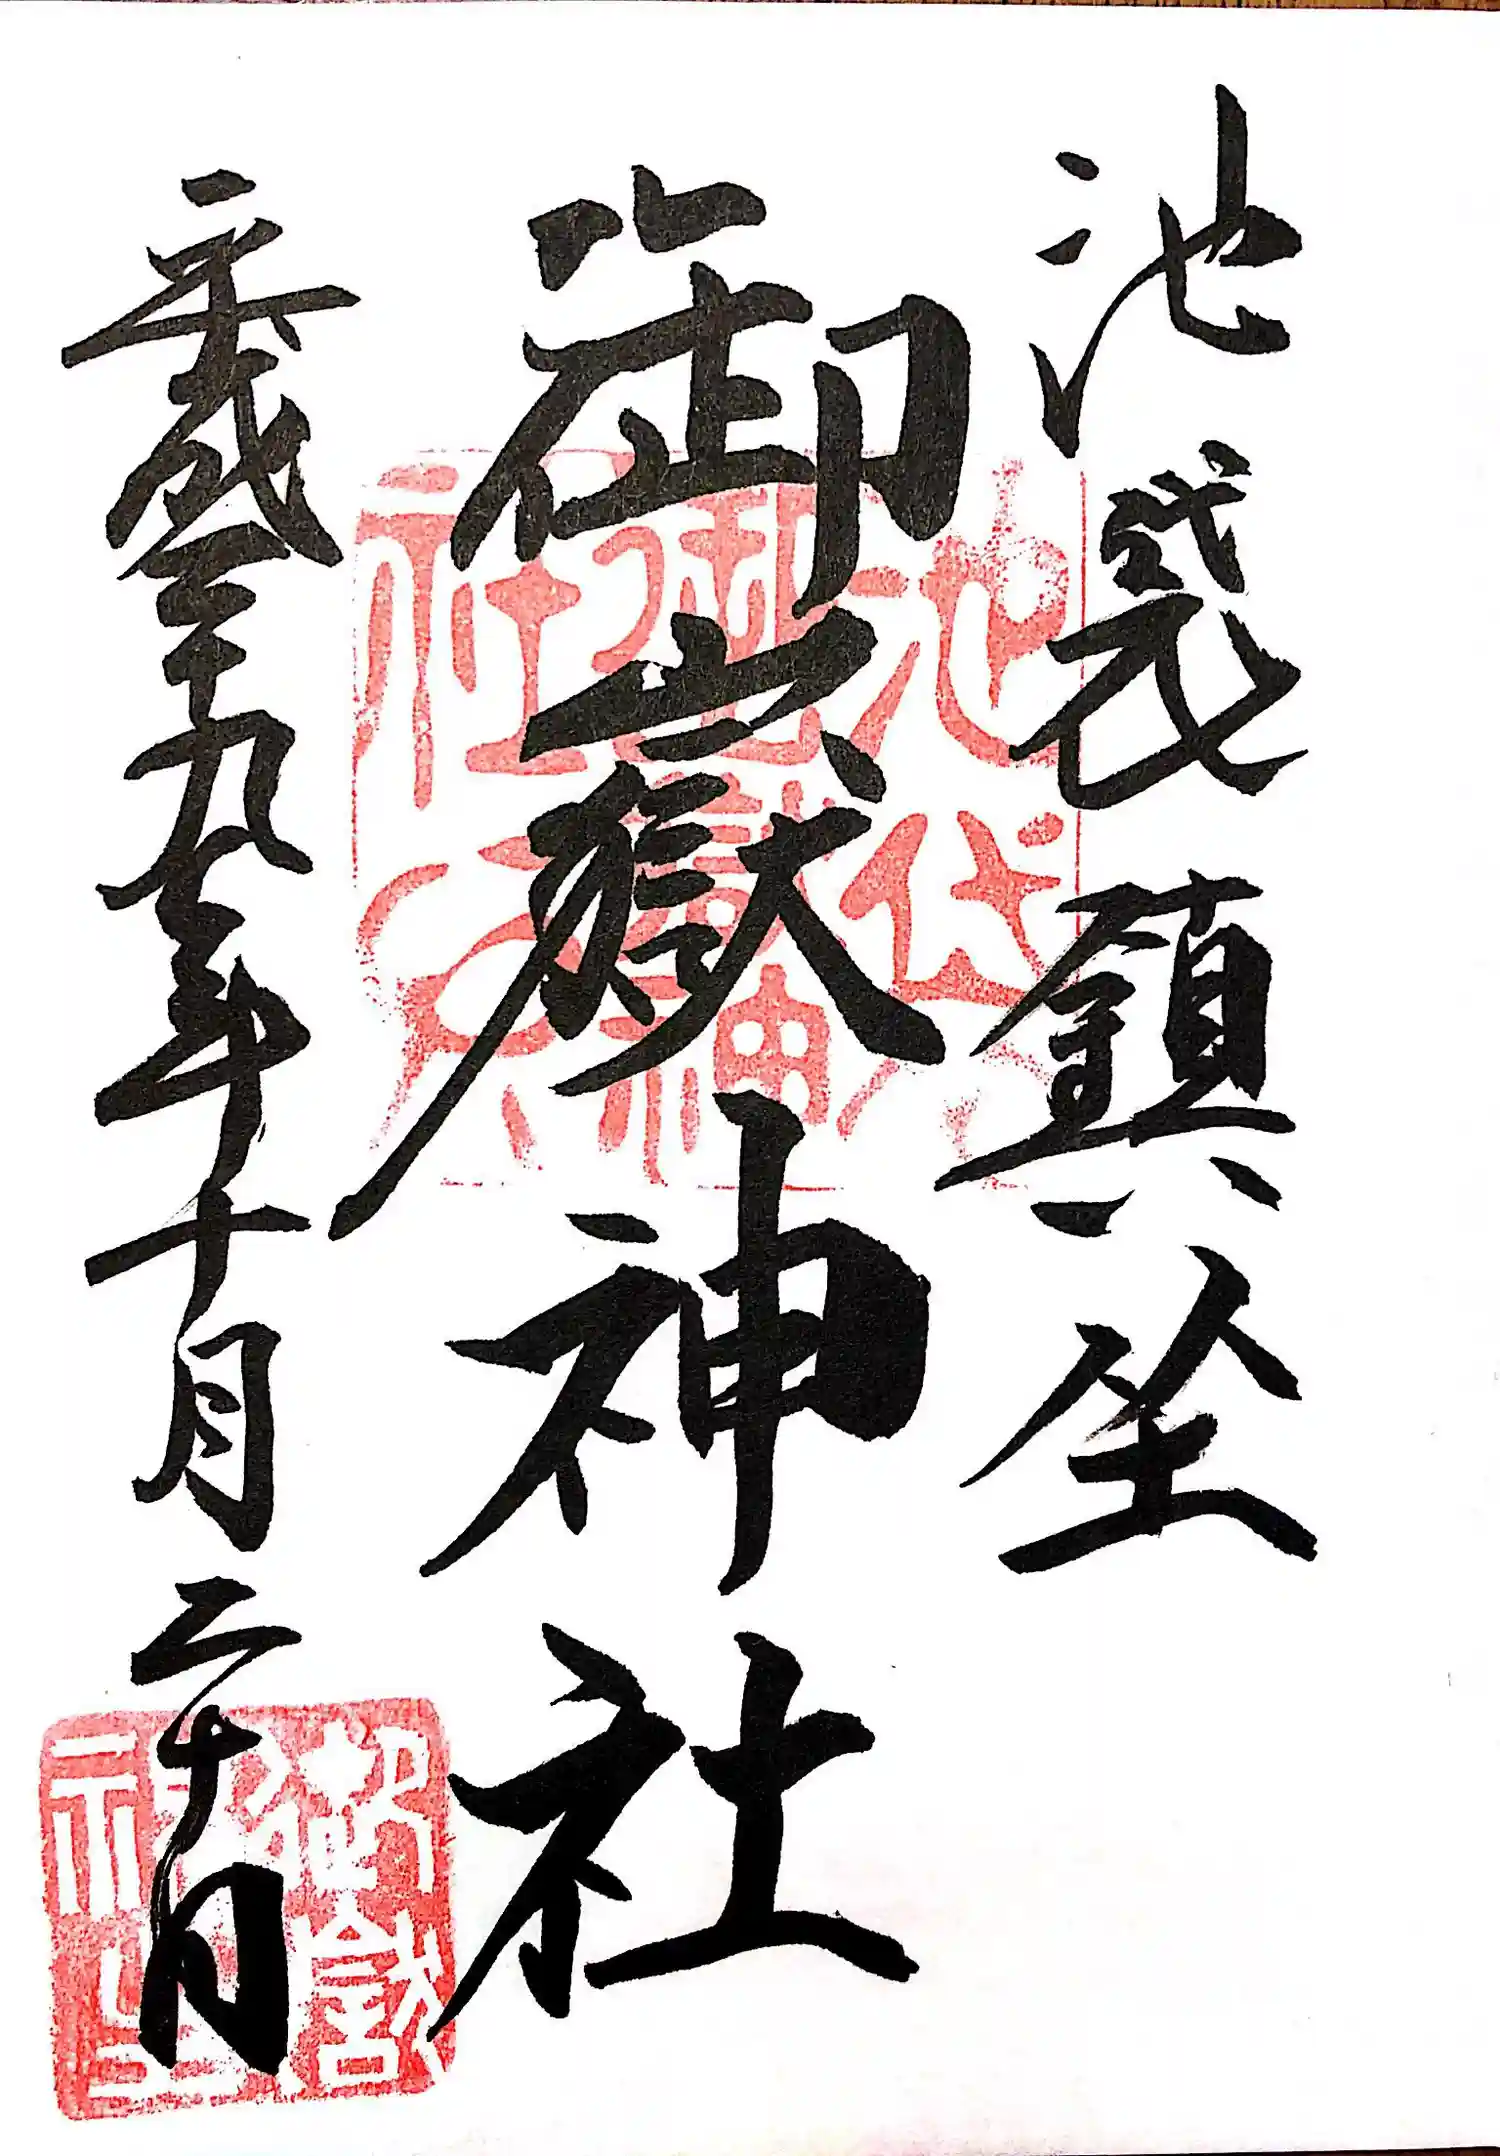 池袋鎮坐
御嶽神社
平成二十九年十月二十日
池袋
御嶽神
社